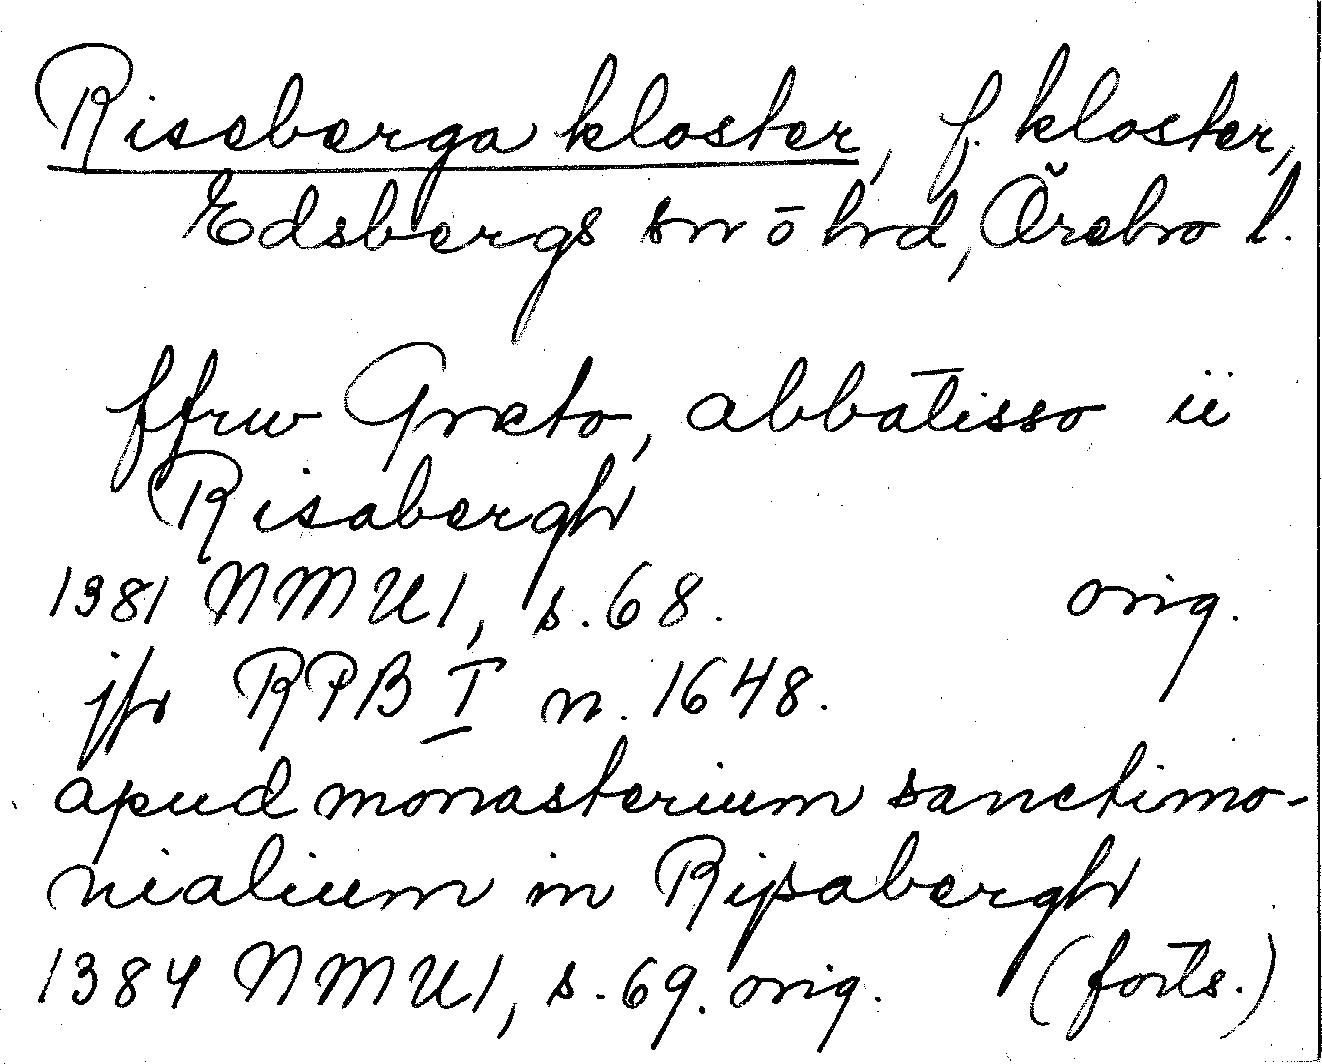 Riseberga kloster, f. kloster,
Edsbergs sn ō hd, Örebro l.
ffrw Greto, abbatisso ii
Risabergh
1381 NMU1, s. 68. orig.
jfr RPB I n. 1648.
apud monasterium sanctimo-
nialium in Rijsabergh
1384 NMU1, s. 69. orig. (forts.)